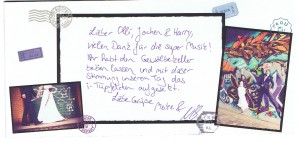 Lieber Olli, Jochen & Harry,
vielen Dank für die super Musik!
Ihr habt den Gewölbekeller
beben lassen und mit dieser
Stimmung unserem Tag das
i-Tüpfelchen aufgesetzt.
Liebe Grüße
&